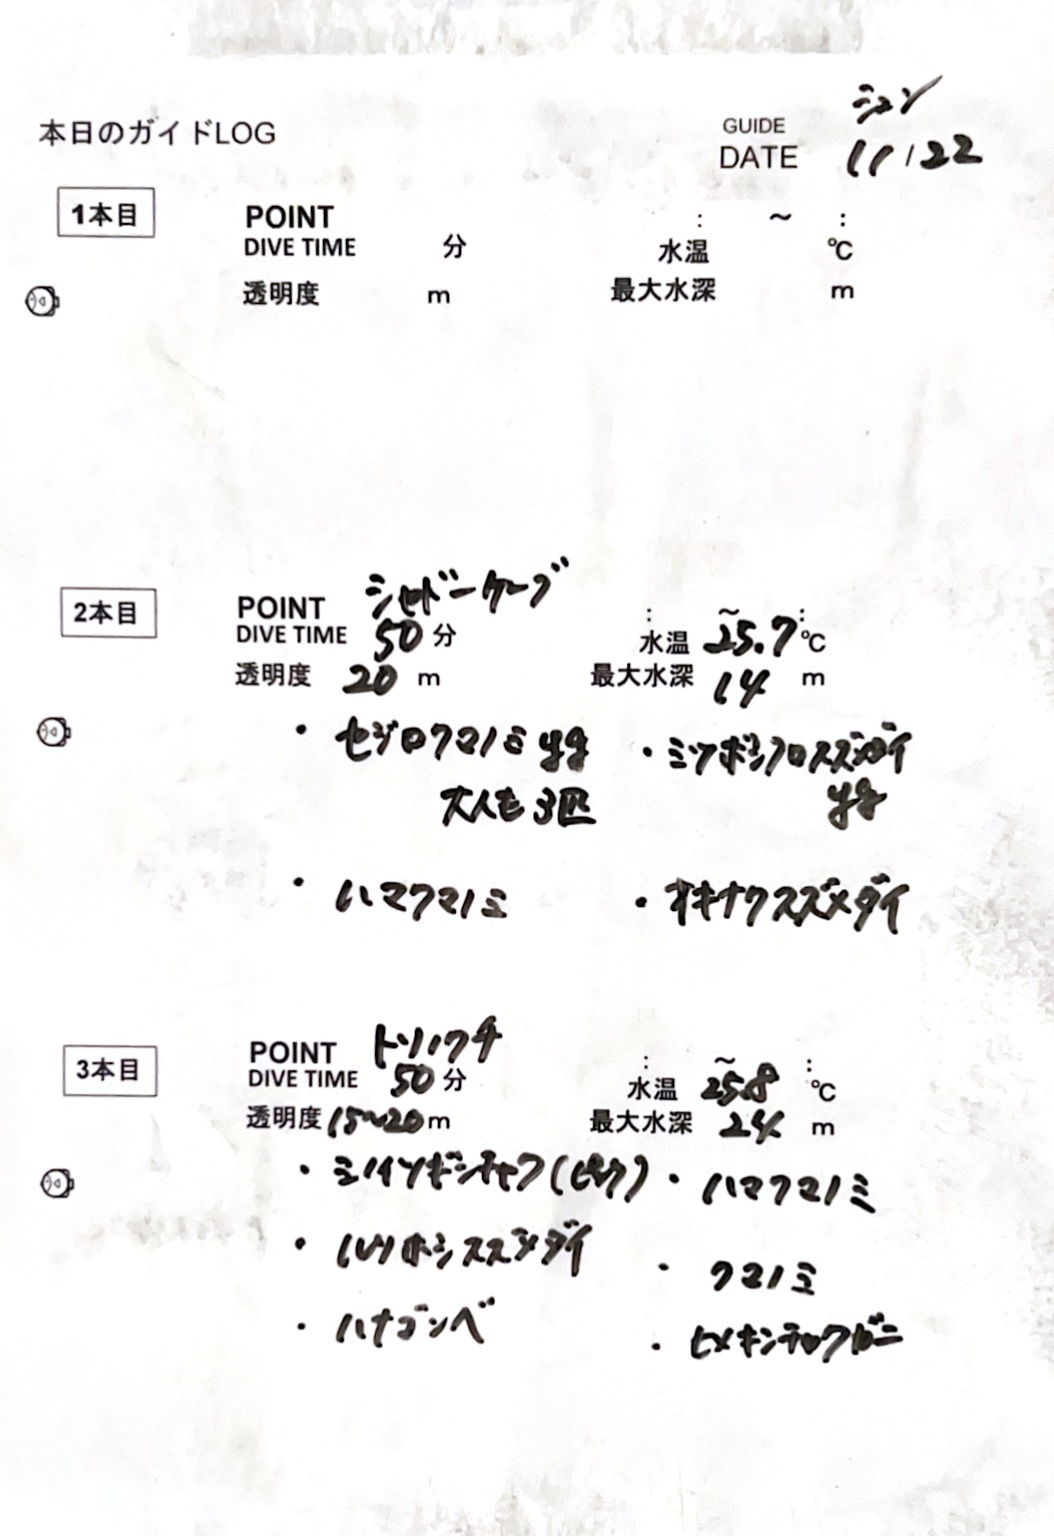 シュン
本日のガイドLOG GUIDE
DATE 11/22
1本目 POINT : ～ :
DIVE TIME 分 水温 ℃
透明度 m 最大水深 m
2本目 POINT シャドーケーブ : ～ :
DIVE TIME 50 分 水温 25.7 ℃
透明度 20 m 最大水深 14 m
・セジロクマノミ yg ・ミツボシクロスズメダイ
大人も3匹 yg
・ハマクマノミ ・オキナワスズメダイ
3本目 POINT トソノウチ : ～ :
DIVE TIME 50 分 水温 25.8 ℃
透明度 15～20 m 最大水深 24 m
・ミノイソギンチャク(ピンク) ・ハマクマノミ
・ルリホシスズメダイ ・クマノミ
・ハナゴンベ ・ヒメキンチャクガニ